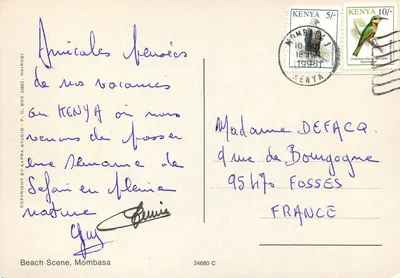 Amicales pensées
de nos vacances
au KENYA où nous
venons de passer
une semaine de
Safari en pleine
nature
Guy
Beach Scene, Mombasa
COPYRIGHT BY SAPRA STUDIO - P. O. BOX 45882, NAIROBI
34680 C
KENYA 5/-
KENYA 10/-
MOMBASA
KENYA
Madame DEFACQ
9 rue de Bourgogne
95470 FOSSES
FRANCE